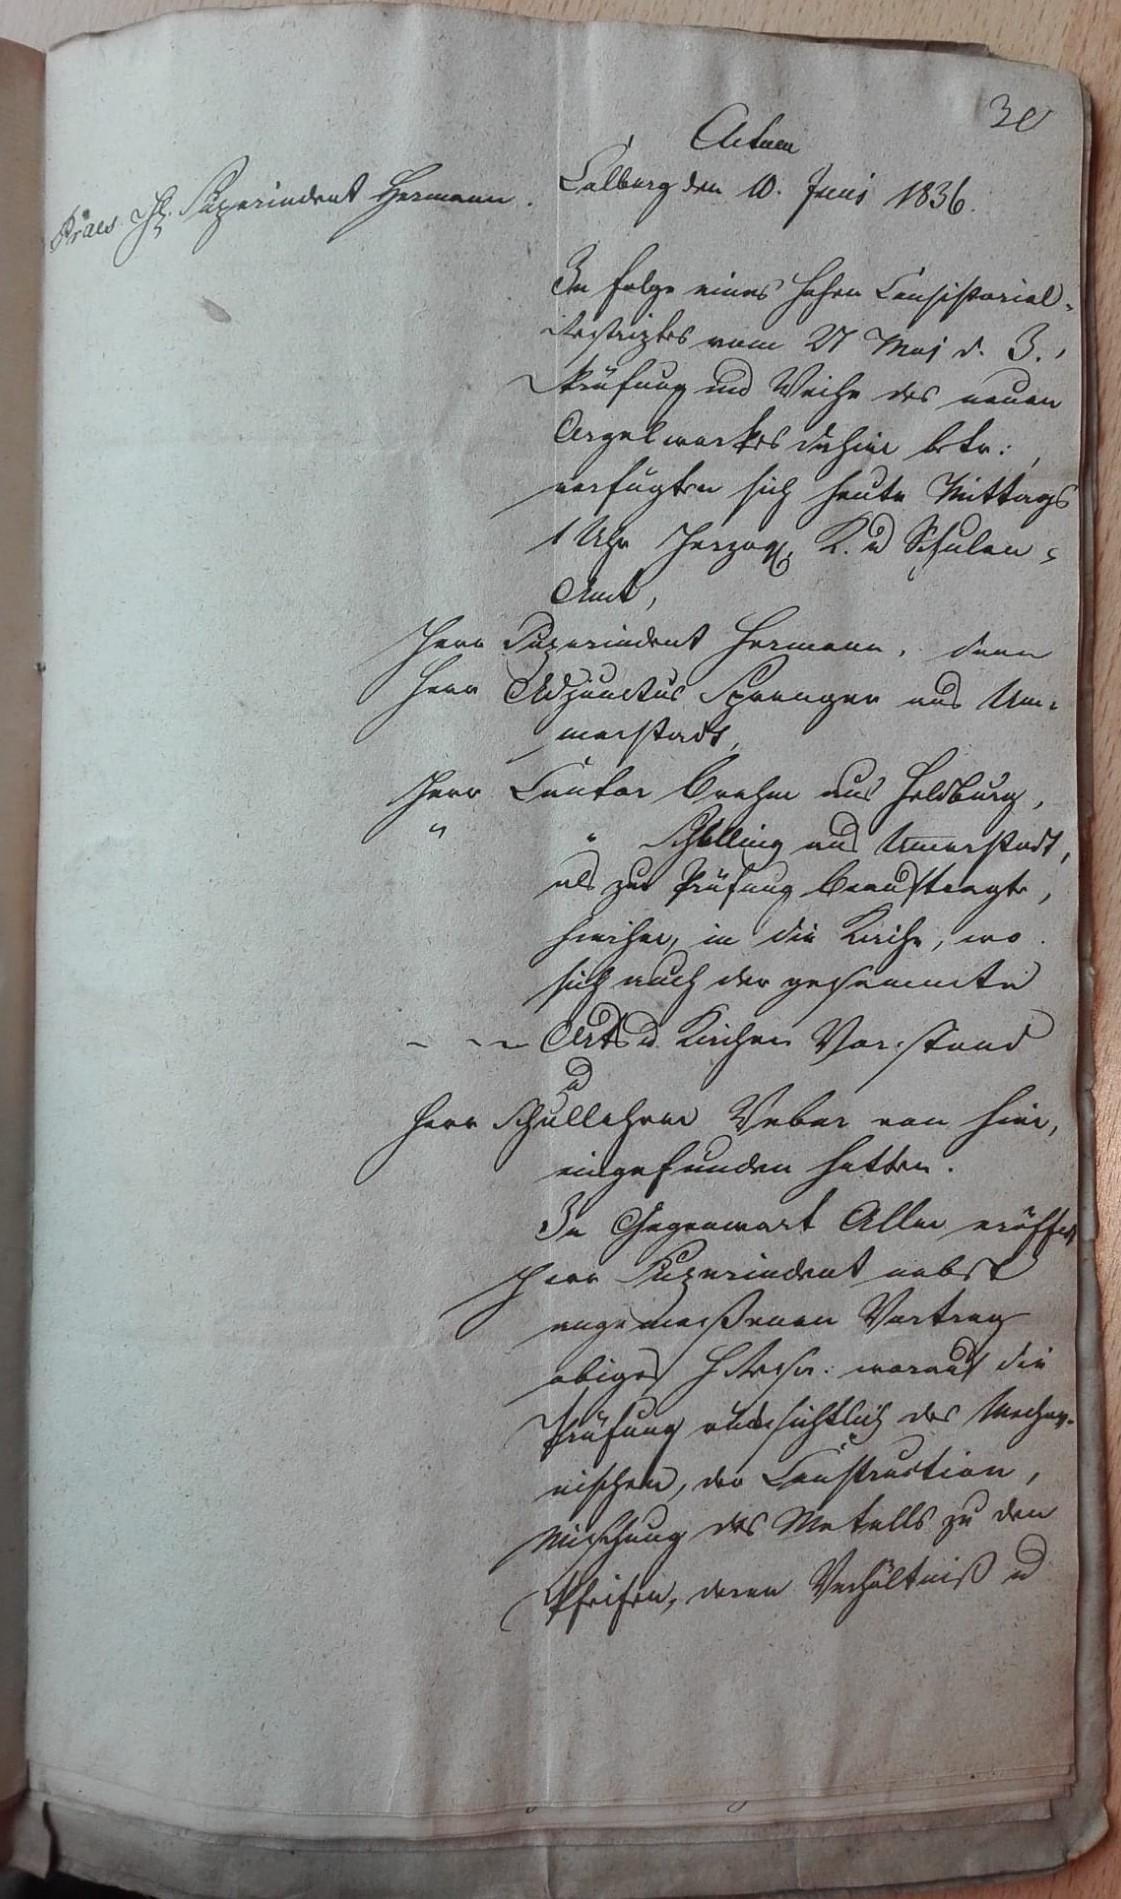 30
Actum
Colberg den 10. Juni 1836.
Praes. H. Superindent Hermann.
In Folge eines hohen Consistorial-
Rescriptes vom 27 Mai d. J.,
Prüfung und Weihe des neuen
Orgelwerkes dahier betr:,
verfügten sich heute Mittags
1 Uhr Herzogl. K. u Schulen-
Amt,
Herr Superindent Hermann, dann
Herr Adjunctus Sprenger aus Um-
merstadt,
Herr Cantor Brehm aus Heldburg,
" " Schilling aus Ummerstadt,
als zur Prüfung Beauftragte,
hierher, in die Kirche, wo
sich auch der gesammte
Orts u Kirchen Vorstand
u
Herr Schullehrer Weber von hier,
eingefunden hatten.
In Gegenwart Aller eröffnet
Herr Superindent nebst
angemessenen Vortrag
obiges H Rescr: worauf die
Prüfung rücksichtlich des Mecha-
nischen, der Construction,
Mischung des Metalls zu den
Pfeifen, deren Verhältniß u